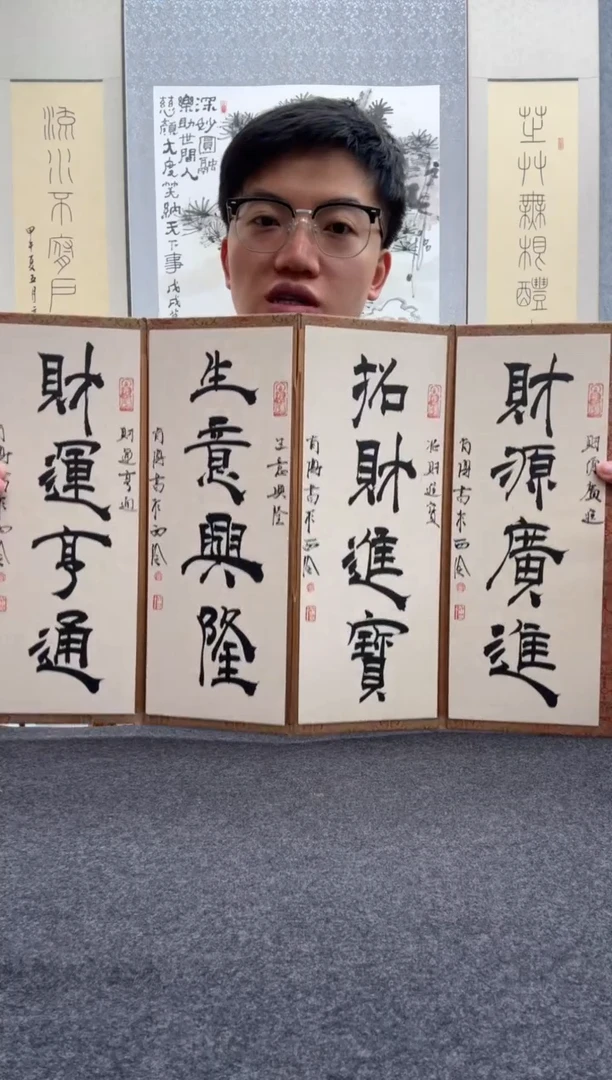 芝艸無根醴
深妙圓融
樂助世間人
慈顏大度笑納天下事
戊戌
流水不腐戶
甲午夏五月
財源廣進
財源廣進
招財進寶
招財進寶
生意興隆
生意興隆
財運亨通
財運亨通